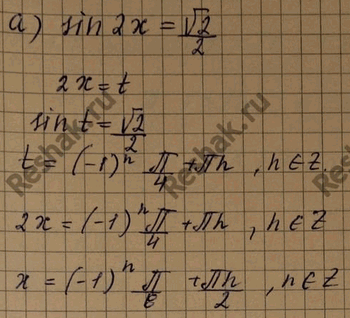 а) sin 2x = √2/2
2x = t
sin t = √2/2
t = (-1)ⁿ π/4 + πn , n ∈ Z
2x = (-1)ⁿ π/4 + πn , n ∈ Z
x = (-1)ⁿ π/6 + πn/2 , n ∈ Z
Reshak.ru
Reshak.ru
Reshak.ru